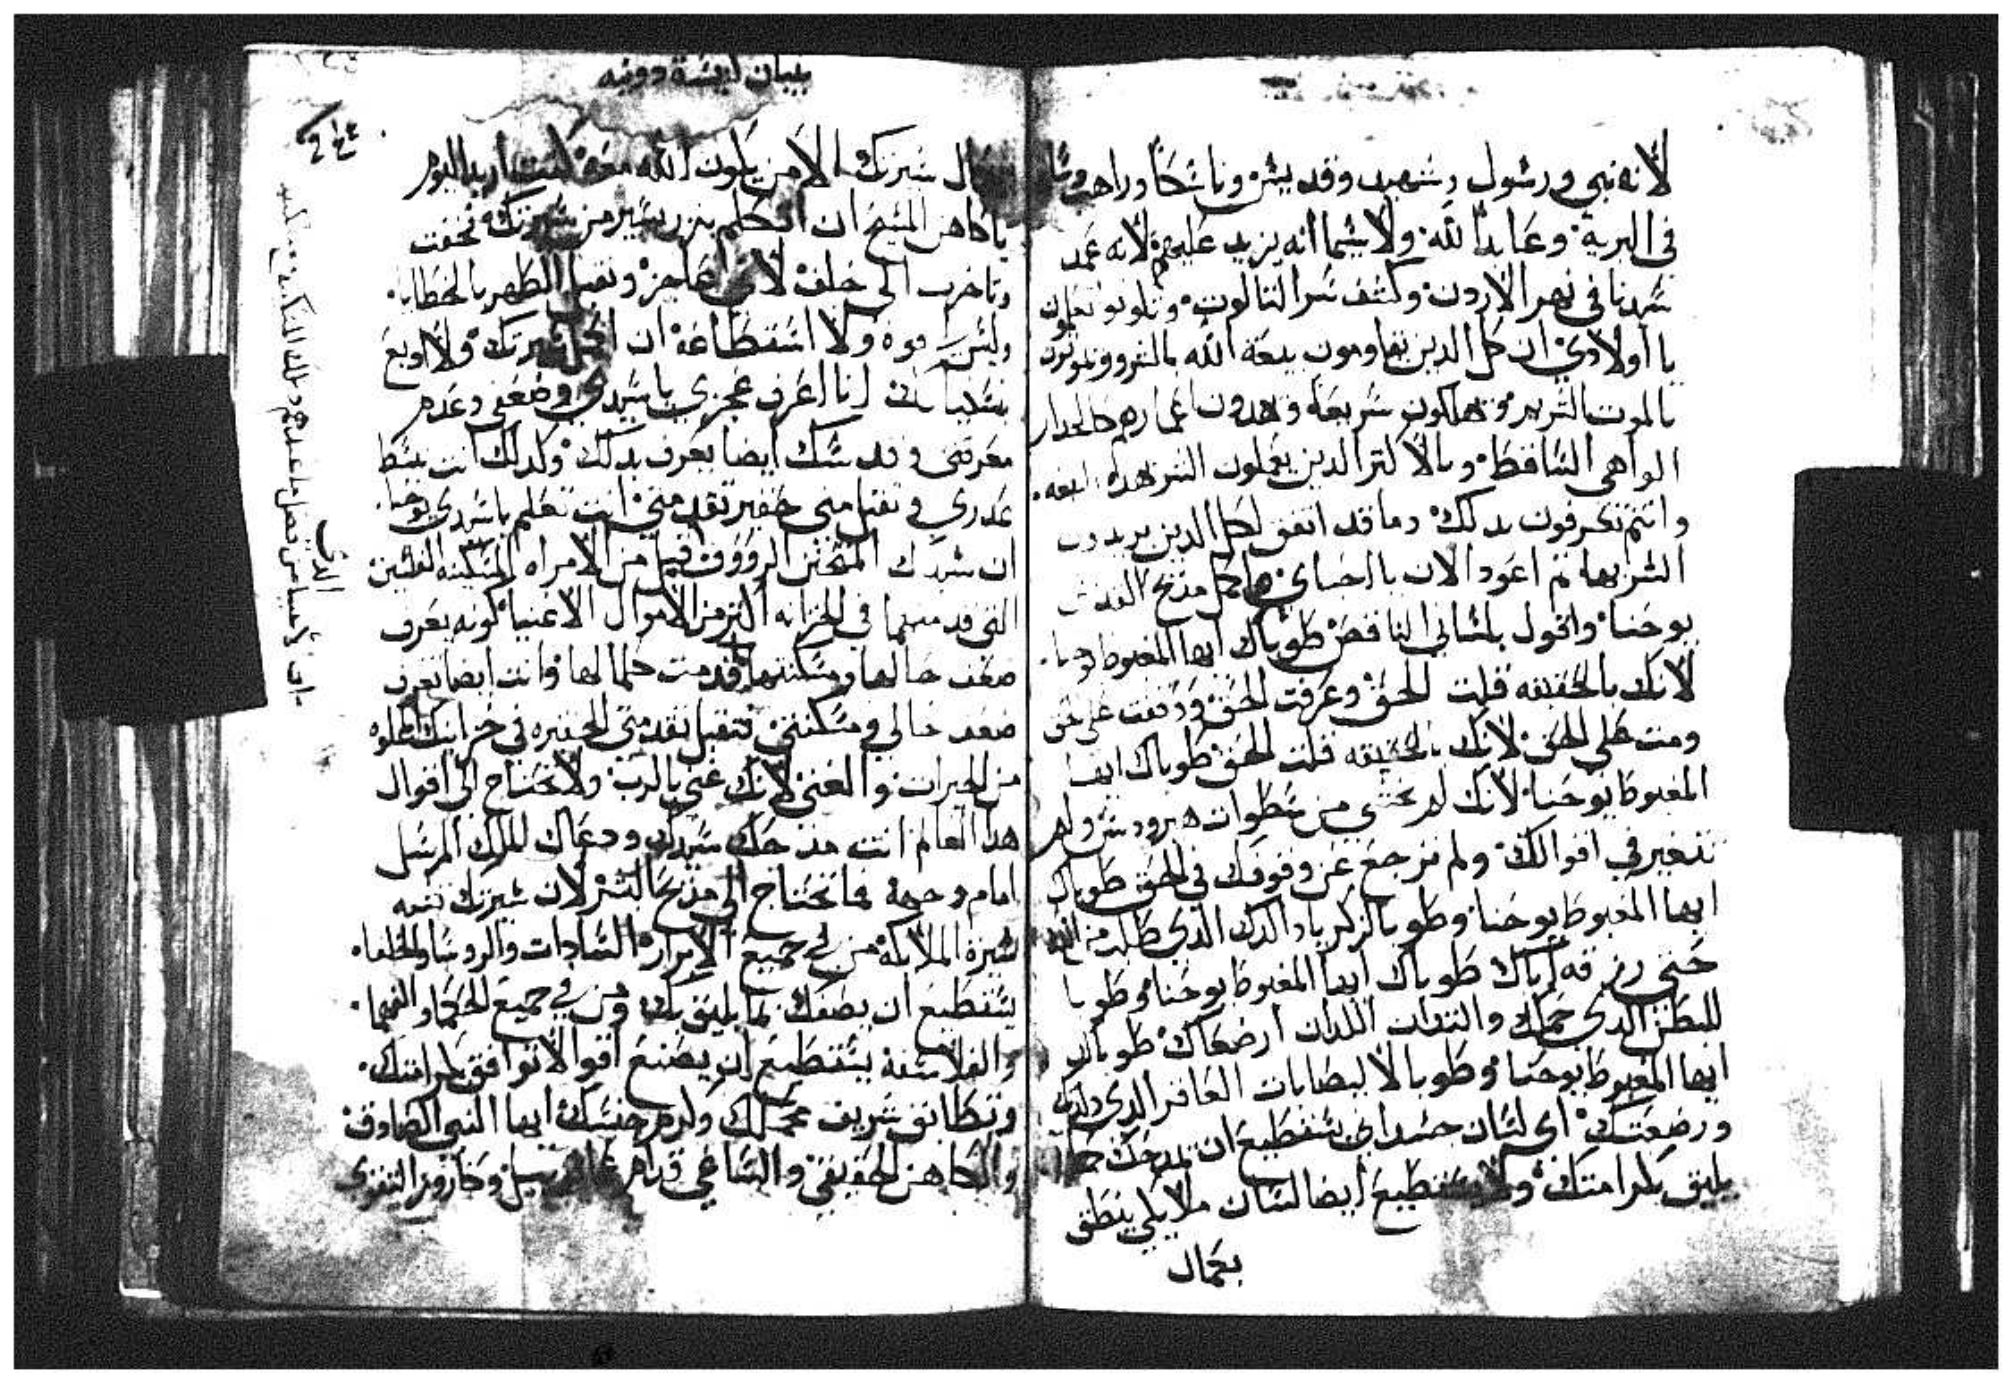 لانه نبي ورسول وشهيد وقديس وناسكاً وراهب
في البرية وعابداً لله ولا سيما انه يزيد عليهم لانه عمد
سيدنا في نهر الاردن وكشف سر الثالوت وتكونو تعلمون
يا أولادي ان كل الدين يقاومون بيعة الله بالشر ويموتون
بالموت الشرير ويهلكون سريعه وهدون اعمارهم كالجدار
الواهي الساقط وبالاكتر الدين يعملون الشر هده البيعه
وانتم تعرفون بدلك وما قد اتفق لكل الدين يريدون
الشر بها تم اعود الان يا احباي الي مديح القديس
يوحنا واقول بلساني الناقص طوباك ايها المغبوط يوحنا
لانك بالحقيقه قلت الحق وعرفت الحق ووقفت على الحق
ومت على الحق لانك بالحقيقه قلت الحق طوباك ايها
المغبوط يوحنا لانك لم تختشي من سطوات هيرودس ولم
تتغير في اقوالك ولم ترجع عن وقوفك في الحق طوباك
ايها المغبوط يوحنا وطوبا لزكريا والدك الدي طلب من الله
حتي رزقه اياك طوباك ايها المغبوط يوحنا وطوبا
للبطن الدي حملك والتديان اللدان ارضعاك طوباك
ايها المغبوط يوحنا وطوبا لاليصابات العاقر الدي ولدتك
ورضعتك اي لسان جسداني يستطيع ان يمدحك
يليق بكرامتك ولا يستطيع أيضا لسان ملايكي ينطق
بكمال
بكمال سيرتك الا من يكون الله معه كنت اريد اليوم
يا كاهن المسيح ان اتكلم بنزر يسير من سيرتك فخفت
وتاخرت الى خلف لاني عاجز وتقيل الظهر بالخطايا
وليس لي قوه ولا استطاعة ان اكمل سيرتك ولا اودع
نسكياتك انا اعرف عجزي يا سيدي وضعفي وعدم
معرفتي وقدسك ايضا يعرف بدلك ولدلك انت تبسط
عدري وتقبل مني حقير تقدمتي انت تعلم يا سيدي يوحنا
ان سيدك المتحنن الرووف قبل من الامراه المسكينه الفلسين
التي قدمتهما في الخزانه اكتر من الاموال الاغنيا كونه يعرف
ضعف حالها ومسكنتها قدمت كلما لها وانت ايضا تعرف
ضعف حالي ومسكنتي فتقبل تقدمتي الحقيره في خزاينك المملوه
من الخيرات والغنى لانك غني بالرب ولا تحتاج الى اقوال
هدا العالم انت مدحك سيدك ودعاك الملاك المرسل
امام وجهه فما تحتاج الي مديح البشر لان سيرتك تشبه
سيرة الملايكة من في جميع الابرار السادات والروسا والخلفاء
يستطيع ان يصفك بما يليق بك ومن في جميع الحكما والفهما
والفلاسفة يستطيع ان يصنع اقوالا توافق كرامتك
وتطابق شريف محلك وكرم جنسك ايها النبي الصادق
والكاهن الحقيقي والساعي قدام وكاروز التقوى